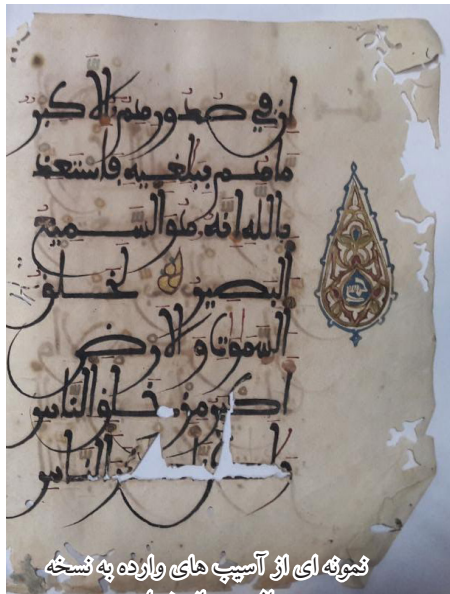 ان في صدورهم الا كبر
ما هم ببلغيه فاستعذ
بالله انه هو السميع
البصير لخلق
السموت والارض
اكبر من خلق الناس
الناس
نمونه ای از آسیب های وارده به نسخه